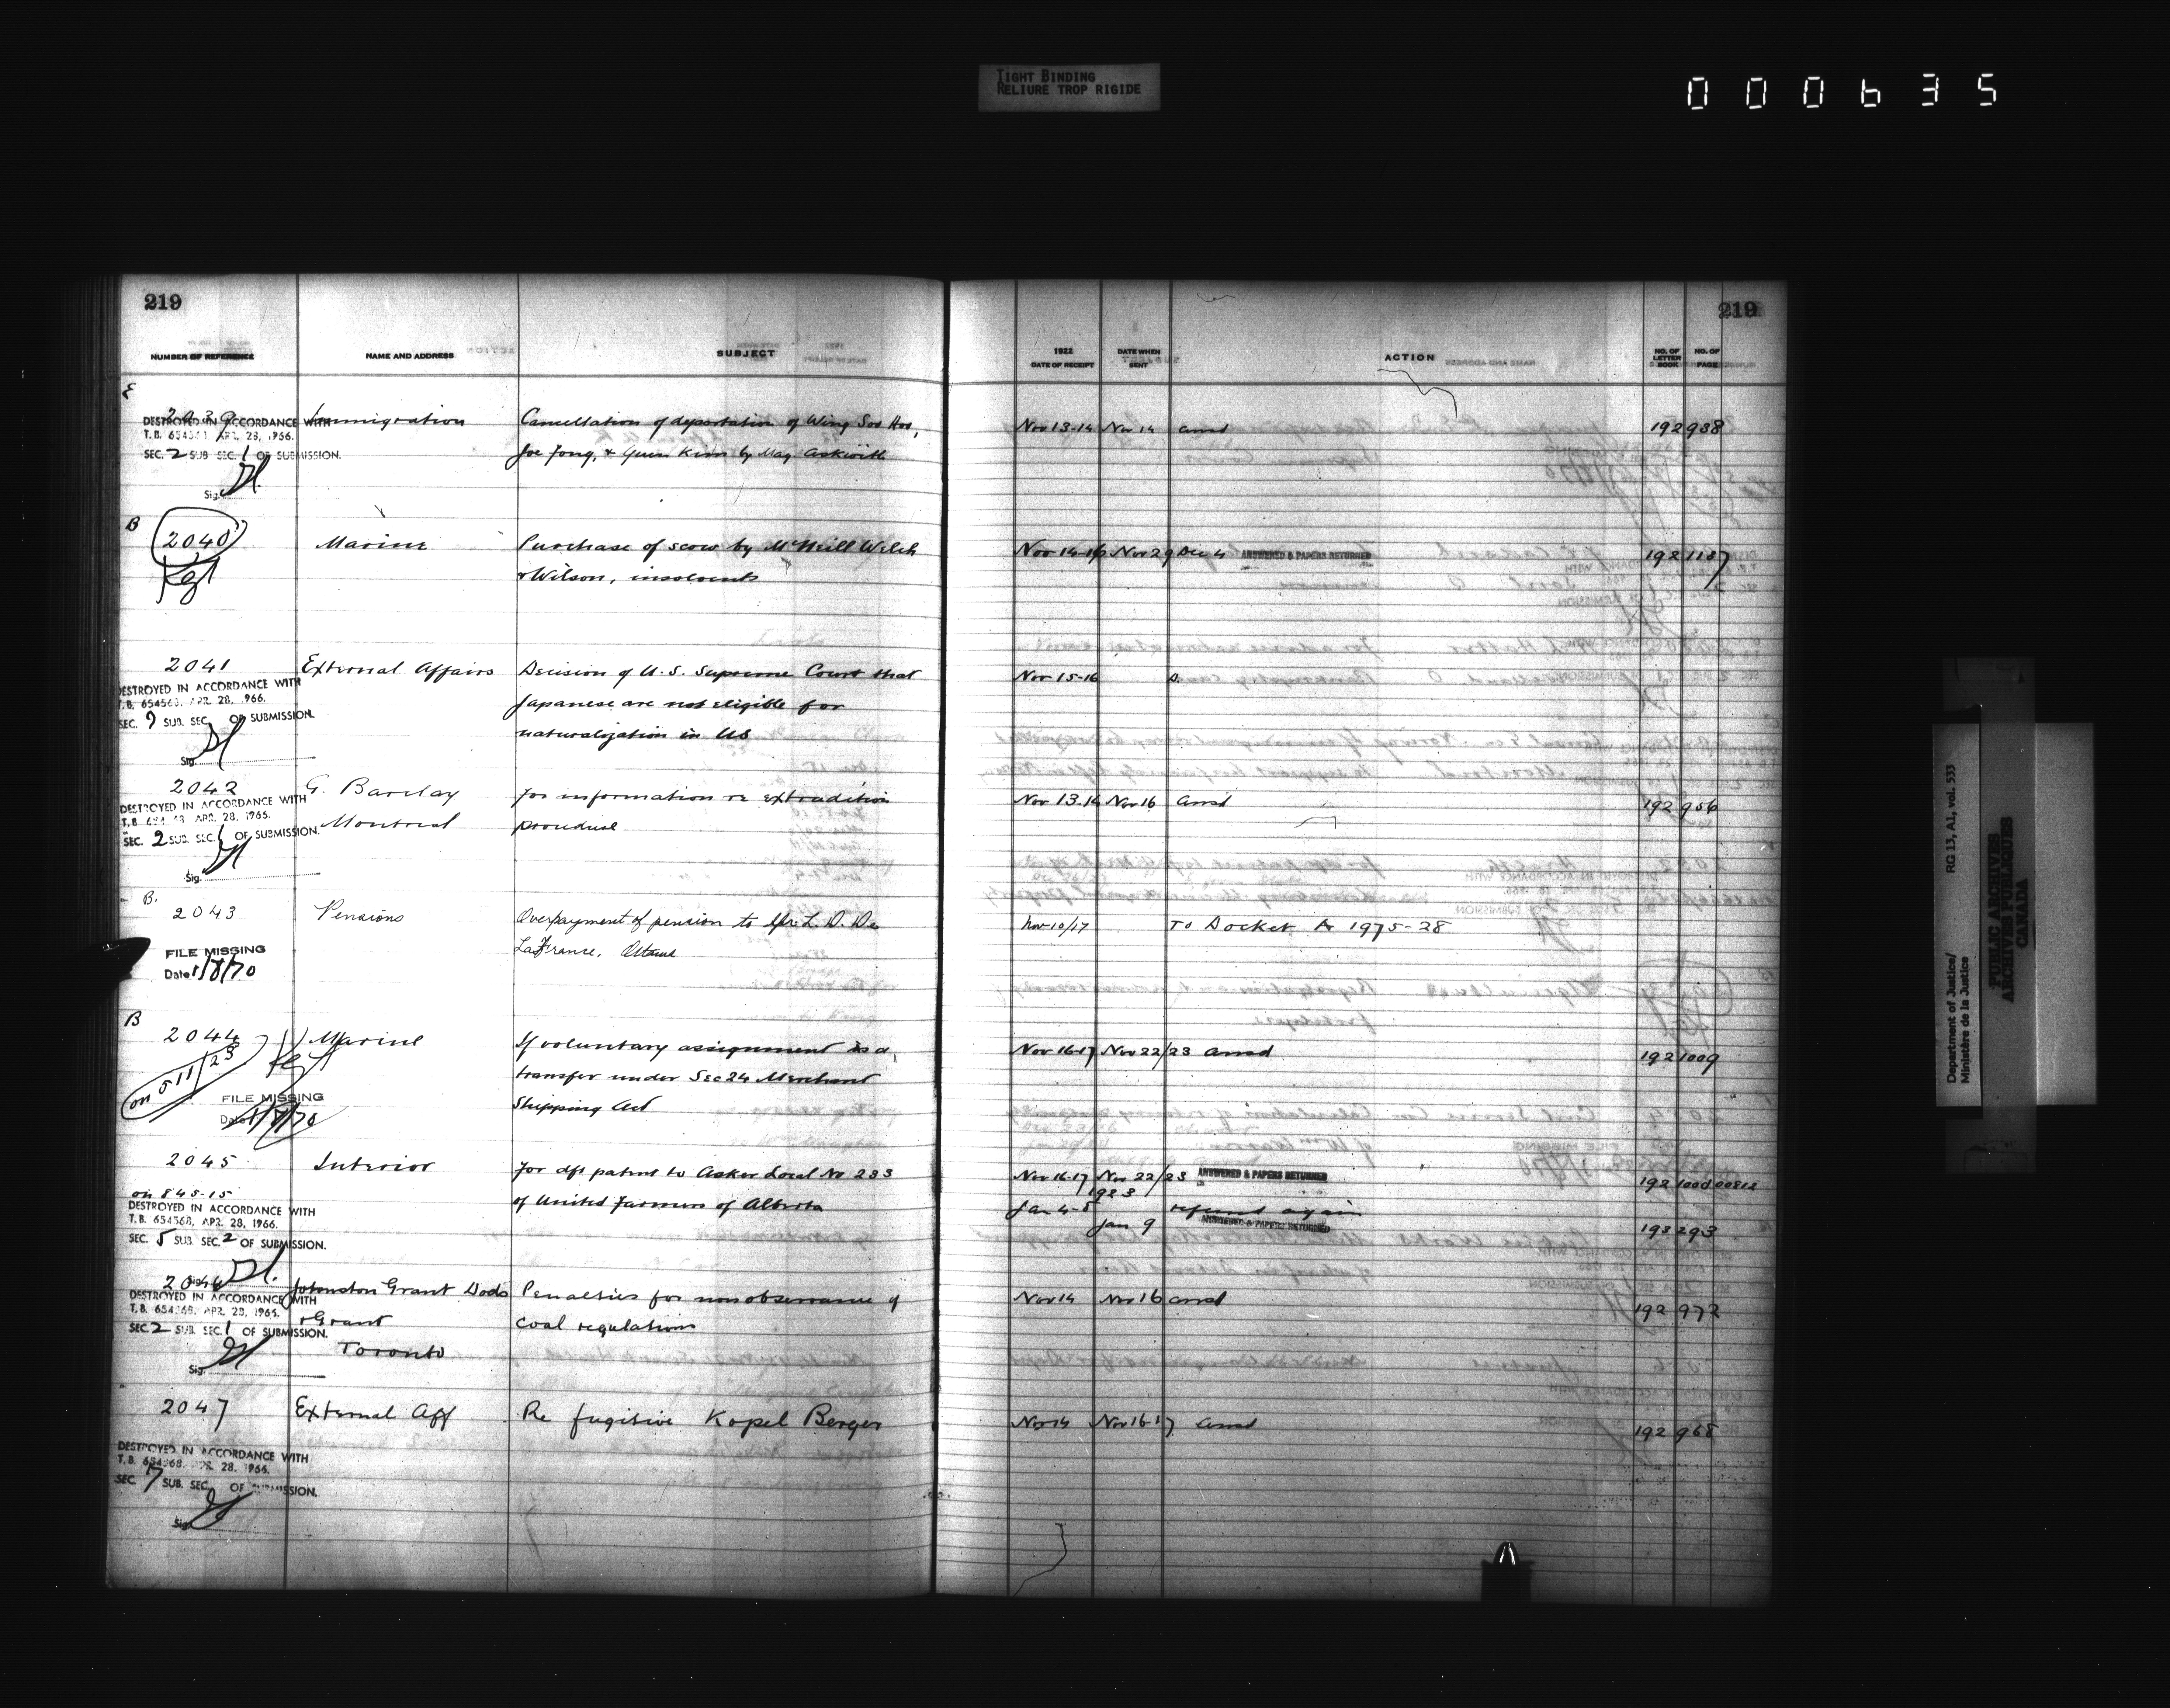 TIGHT BINDING
RELIURE TROP RIGIDE
000635
219
219
NUMBER OF REFERENCE NAME AND ADDRESS SUBJECT
1922 DATE OF RECEIPT DATE WHEN SENT ACTION NO. OF LETTER BOOK NO. OF PAGE
E
2039 Immigration Cancellation of deportation of Wing Soo Hoo, Nov 13-14 Nov 14 ansd 192 938
DESTROYED IN ACCORDANCE WITH
T.B. 654561 APR. 28, 1966.
Joe Fong, & Quen Kim by Maj Askwith
SEC. 2 SUB SEC. 1 OF SUBMISSION.
Sig.
B
2040 Marine Purchase of scow by McNeill Welch Nov 14-16 Nov 29 Dec 4 ANSWERED & PAPERS RETURNED 192 1187
& Wilson, insolvents
2041 External Affairs Decision of U.S. Supreme Court that Nov 15-16 D.
DESTROYED IN ACCORDANCE WITH
T.B. 654563, APR. 28, 1966.
Japanese are not eligible for
SEC. 9 SUB. SEC. OF SUBMISSION.
naturalization in US
Sig.
2042 G. Barclay for information re extradition Nov 13-14 Nov 16 ansd 192 956
DESTROYED IN ACCORDANCE WITH
T.B. APR. 28, 1966.
Montreal procedure
SEC. 2 SUB. SEC. 1 OF SUBMISSION.
Sig.
B.
2043 Pensions Overpayment of pension to Mr L. D. De Nov 10/17 To Docket A 1975-28
LaFrance, Ottawa
FILE MISSING
Date 1/8/70
B
2044 Marine If voluntary assignment is a Nov 16-17 Nov 22/23 ansd 192 1009
on 511/23
transfer under Sec 24 Merchant
FILE MISSING
Shipping Act
Date 1/8/70
2045 Interior for dft patent to Asker Local No 233 Nov 16-17 Nov 22/23 ANSWERED & PAPERS RETURNED 192 1000
on 845-15
of United Farmers of Alberta Jan 4-5 1923
DESTROYED IN ACCORDANCE WITH
T.B. 654568, APR. 28, 1966.
Jan 9 ANSWERED & PAPERS RETURNED 193 293
SEC. 5 SUB. SEC. 2 OF SUBMISSION.
Sig.
2046 Johnston Grant Dods Penalties for nonobservance of Nov 14 Nov 16 ansd 192 972
DESTROYED IN ACCORDANCE WITH
T.B. 654568, APR. 28, 1966.
& Grant coal regulations
SEC. 2 SUB. SEC. 1 OF SUBMISSION.
Toronto
Sig.
2047 External Aff Re fugitive Kopel Berger Nov 14 Nov 16-17 ansd 192 968
DESTROYED IN ACCORDANCE WITH
T.B. 654568, APR. 28, 1966.
SEC. 7 SUB. SEC. OF SUBMISSION.
Sig.
Department of Justice/ RG 13, A1, vol. 533
Ministère de la Justice
PUBLIC ARCHIVES
ARCHIVES PUBLIQUES
CANADA